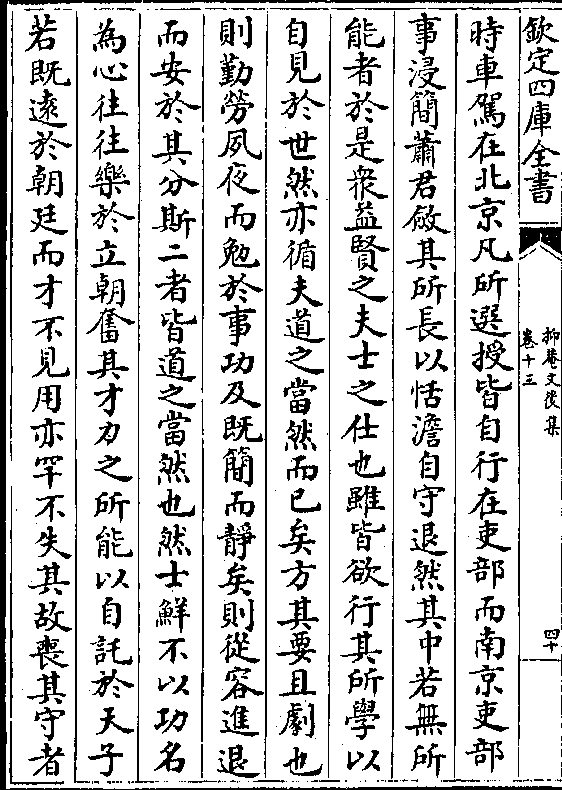 欽定四庫全書
抑菴文後集
卷十三
四十
時車駕在北京凡所選授皆自行在吏部而南京吏部
事浸簡蕭君斂其所長以恬澹自守退然其中若無所
能者於是衆益賢之夫士之仕也雖皆欲行其所學以
自見於世然亦循夫道之當然而已矣方其要且劇也
則勤勞夙夜而勉於事功及既簡而靜矣則從容進退
而安於其分斯二者皆道之當然也然士鮮不以功名
為心往往樂於立朝奮其才力之所能以自託於天子
若既遠於朝廷而才不見用亦罕不失其故喪其守者